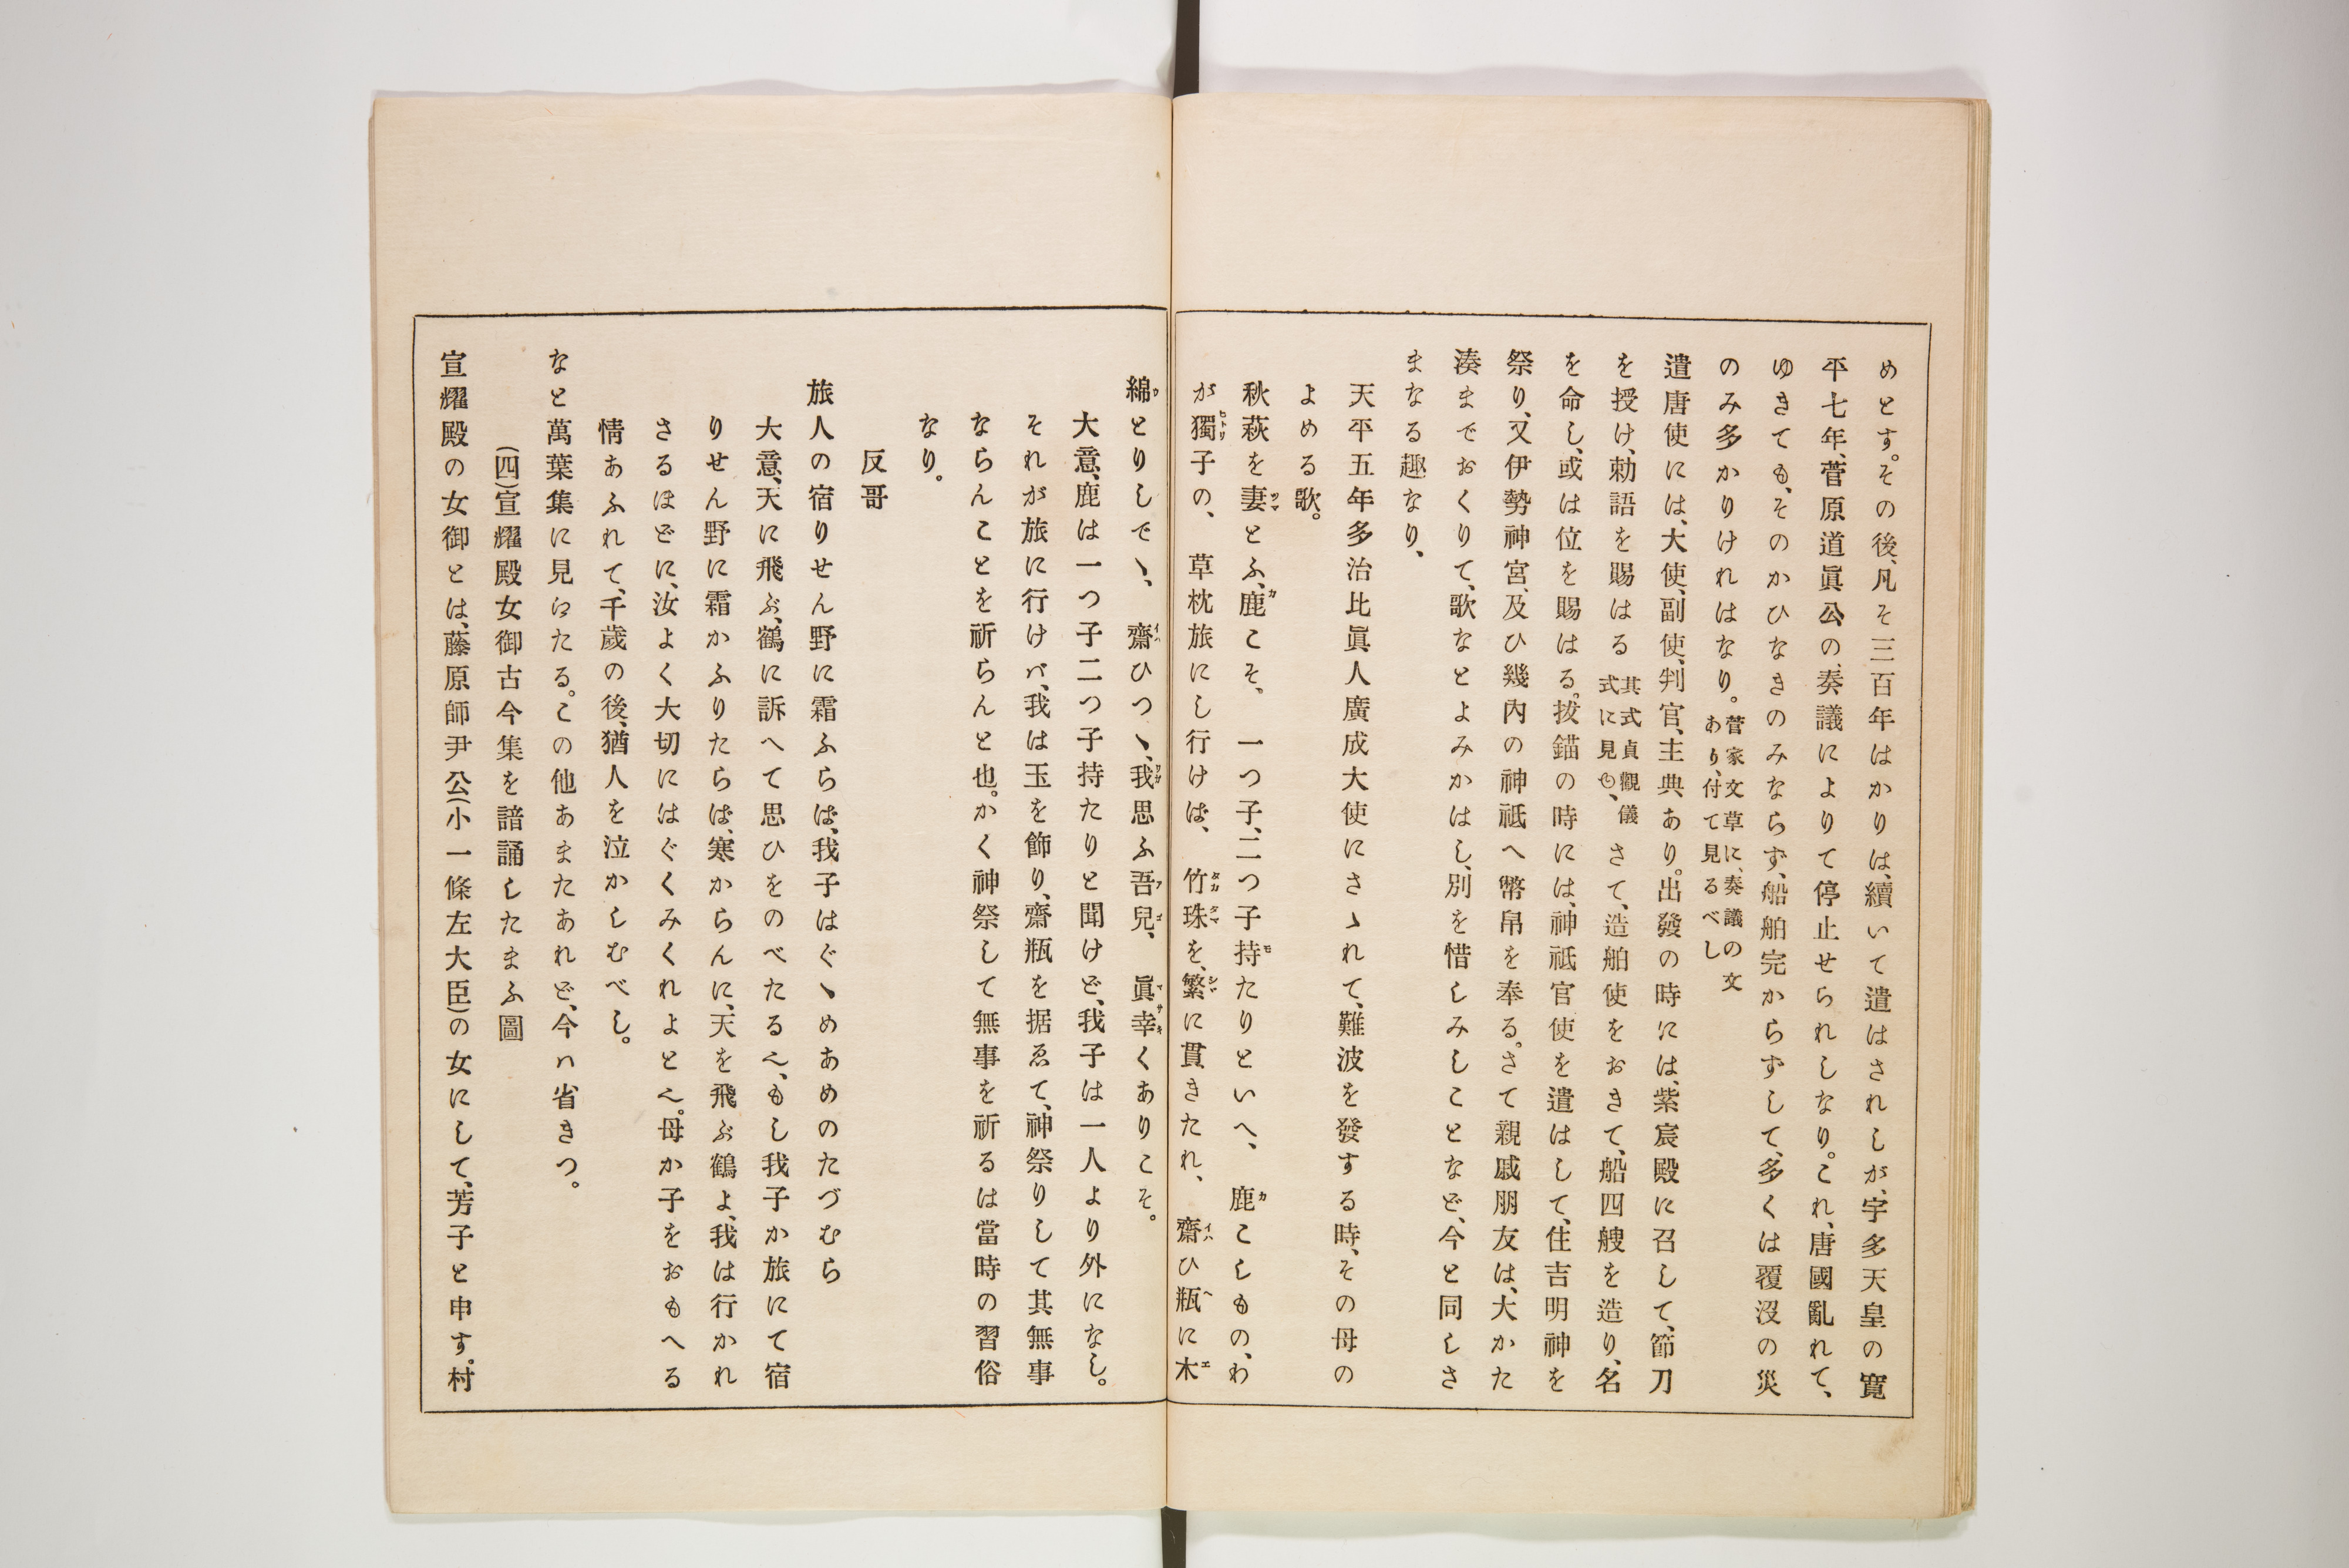 めとす。その後、凡そ三百年はかりは、續いて遣はされしが、宇多天皇の寛
平七年、菅原道眞公の奏議によりて停止せられしなり。これ、唐國亂れて、
ゆきても、そのかひなきのみならず、船舶完からずして、多くは覆沒の災
のみ多かりけれはなり。菅家文草に、奏議の文
あり、付て見るべし
遣唐使には、大使、副使、判官、主典あり。出發の時には、紫宸殿に召して、節刀
を授け、勅語を賜はる其式貞觀儀
式に見ゆ、さて、造舶使をおきて、船四艘を造り、名
を命し、或は位を賜はる。拔錨の時には、神祇官使を遣はして、住吉明神を
祭り、又伊勢神宮、及ひ幾內の神祇へ幣帛を奉る。さて親戚朋友は、大かた
湊までおくりて、歌なとよみかはし、別を惜しみしことなど、今と同しさ
まなる趣なり、
天平五年多治比眞人廣成大使にさゝれて、難波を發する時、その母の
よめる歌。
秋萩を妻とふ、鹿こそ、一つ子、二つ子持たりといへ、鹿こしもの、わ
が獨子の、草枕旅にし行けば、竹珠を、繁に貫きたれ、齋ひ瓶に木
綿とりしでヽ、齋ひつヽ、我思ふ吾兒、眞幸くありこそ。
大意、鹿は一つ子二つ子持たりと聞けど、我子は一人より外になし。
それが旅に行けバ、我は玉を飾り、齋瓶を据ゑて、神祭りして其無事
ならんことを祈らんと也。かく神祭して無事を祈るは當時の習俗
なり。
反哥
旅人の宿りせん野に霜ふらば、我子はぐヽめあめのたづむら
大意、天に飛ぶ、鶴に訴へて思ひをのべたる也、もし我子か旅にて宿
りせん野に霜かふりたらば、寒からんに、天を飛ぶ鶴よ、我は行かれ
さるほどに、汝よく大切にはぐくみくれよと也。母か子をおもへる
情あふれて、千歲の後、猶人を泣かしむべし。
なと萬葉集に見江たる。この他あまたあれど、今ハ省きつ。
(四)宣耀殿女御古今集を諳誦したまふ圖
宣耀殿の女御とは、藤原師尹公(小一條左大臣)の女にして、芳子と申す。村